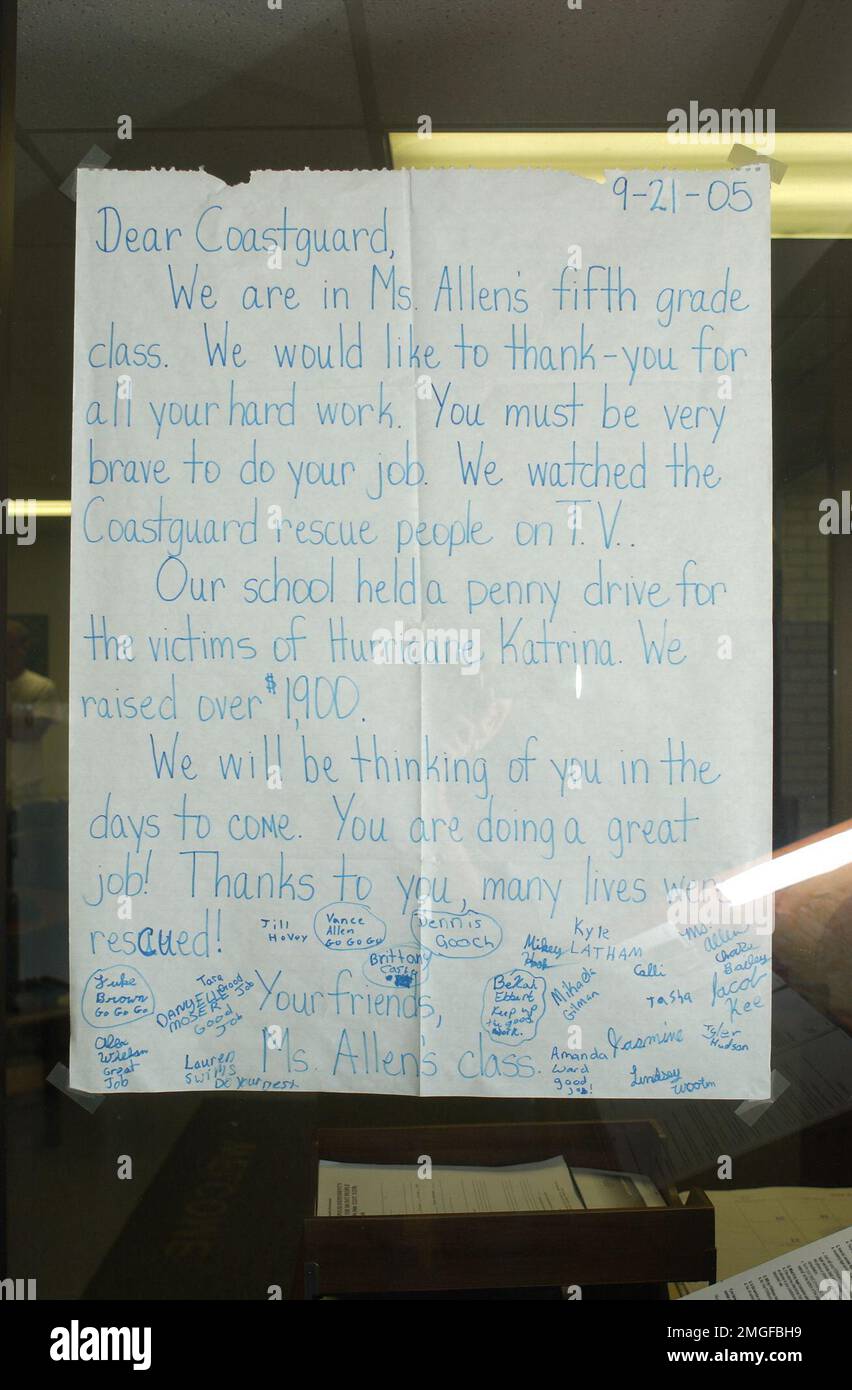 9-21-05
Dear Coastguard,
We are in Ms. Allen's fifth grade
class. We would like to thank-you for
all your hard work. You must be very
brave to do your job. We watched the
Coastguard rescue people on T.V..
Our school held a penny drive for
the victims of Hurricane Katrina. We
raised over $1,900.
We will be thinking of you in the
days to come. You are doing a great
job! Thanks to you, many lives were
rescued!
Jill
Hovey
Vance
Allen
GO GO GO
Dennis
Gooch
Brittany
Mikey
Kyle
LATHAM
Ms.
Allen
Bailey
Luke
Brown
GO GO GO
DANYELLE
MOSER
Good
Job
Tara
Good
Job
Your friends,
Bekah
Keep up
the good
work.
Mikada
Gilman
Calli
Tasha
Jacob
Kee
Alex
Great
Job
Lauren
Swims
Do your best
Ms. Allen's class.
Amanda
Ward
good
job!
Yasmine
Tyler
Hudson
Lindsay
WELCOME
alamy
Image ID: 2MGFBH9
www.alamy.com